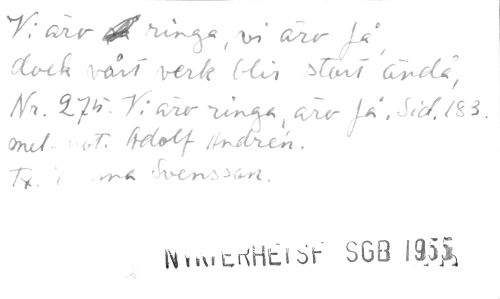 Vi äro ringa, vi äro få,
dock vårt verk blir stort ändå,
Nr. 275. Vi äro ringa, äro få. Sid. 183.
mel. Adolf Andrén.
Tx. Svensson.
SGB 1955